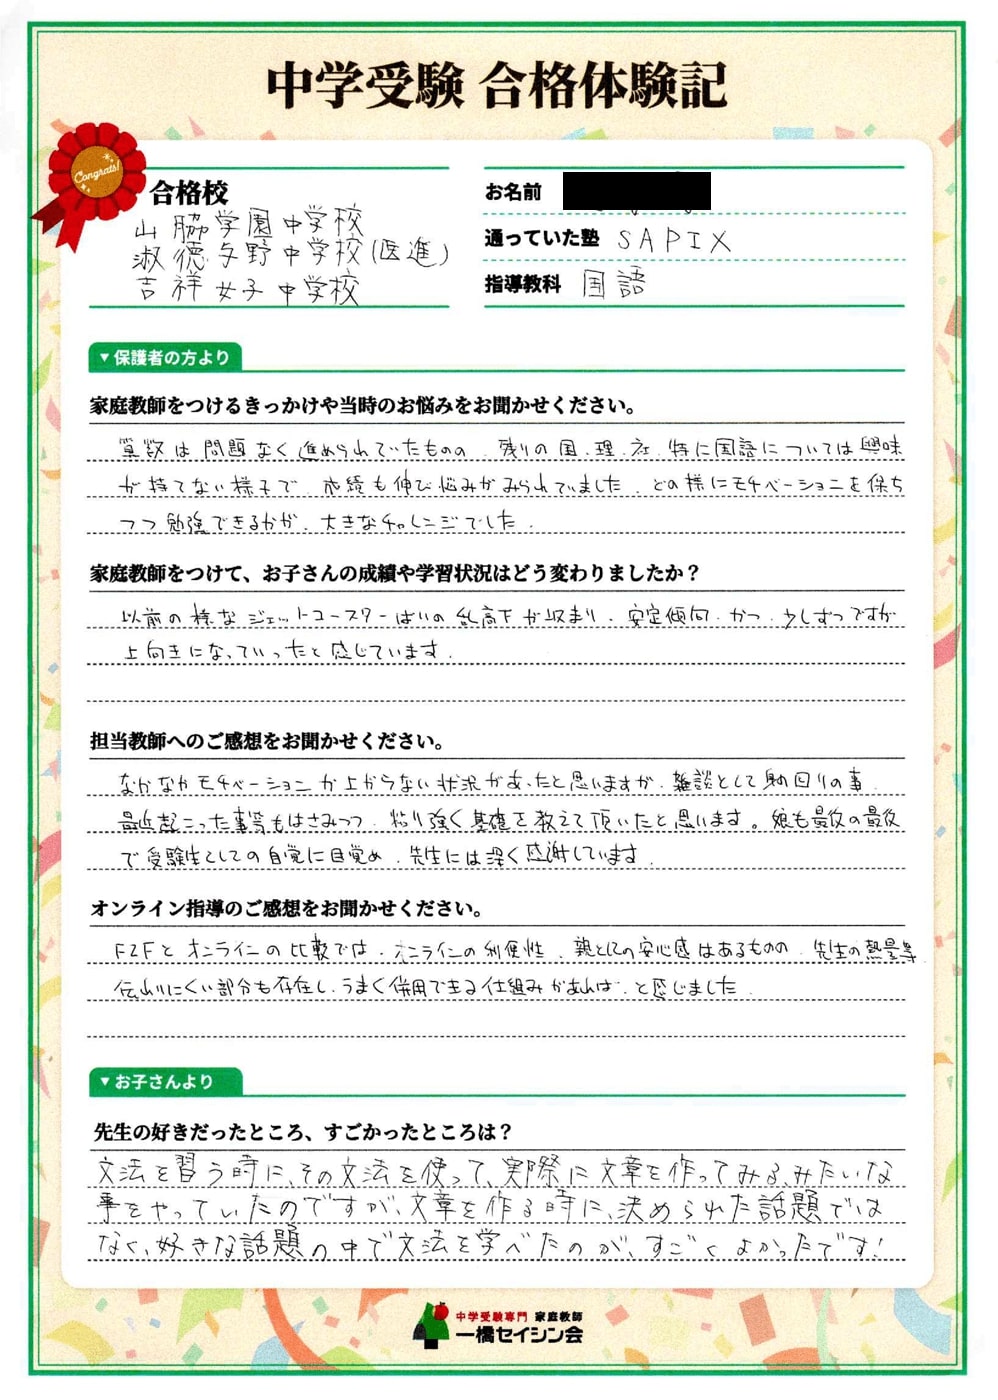 中学受験 合格体験記
Congrats!
合格校
山脇学園中学校
淑徳与野中学校(医進)
吉祥女子中学校
お名前
通っていた塾 SAPIX
指導教科 国語
▼保護者の方より
家庭教師をつけるきっかけや当時のお悩みをお聞かせください。
算数は問題なく進められていたものの、残りの国、理、社、特に国語については興味
が持てない様子で、成績も伸び悩みがみられていました。どの様にモチベーションを保ち
つつ勉強できるかが、大きなチャレンジでした。
家庭教師をつけて、お子さんの成績や学習状況はどう変わりましたか？
以前の様なジェットコースターばりの乱高下が収まり、安定傾向、かつ、少しずつですが
上向きになっていったと感じています。
担当教師へのご感想をお聞かせください。
なかなかモチベーションが上がらない状況があったと思いますが、雑談として身の回りの事、
最近起こった事等もはさみつつ、粘り強く基礎を教えて頂いたと思います。娘も最後の最後
で受験生としての自覚に目覚め、先生には深く感謝しています。
オンライン指導のご感想をお聞かせください。
F2Fとオンラインの比較では、オンラインの利便性、親としての安心感はあるものの、先生の熱量等
伝わりにくい部分も存在し、うまく併用できる仕組みがあれば、と感じました。
▼お子さんより
先生の好きだったところ、すごかったところは？
文法を習う時に、その文法を使って、実際に文章を作ってみる、みたいな
事をやっていたのですが、文章を作る時に、決められた話題では
なく、好きな話題の中で文法を学べたのが、すごくよかったです!
中学受験専門 家庭教師
一橋セイシン会